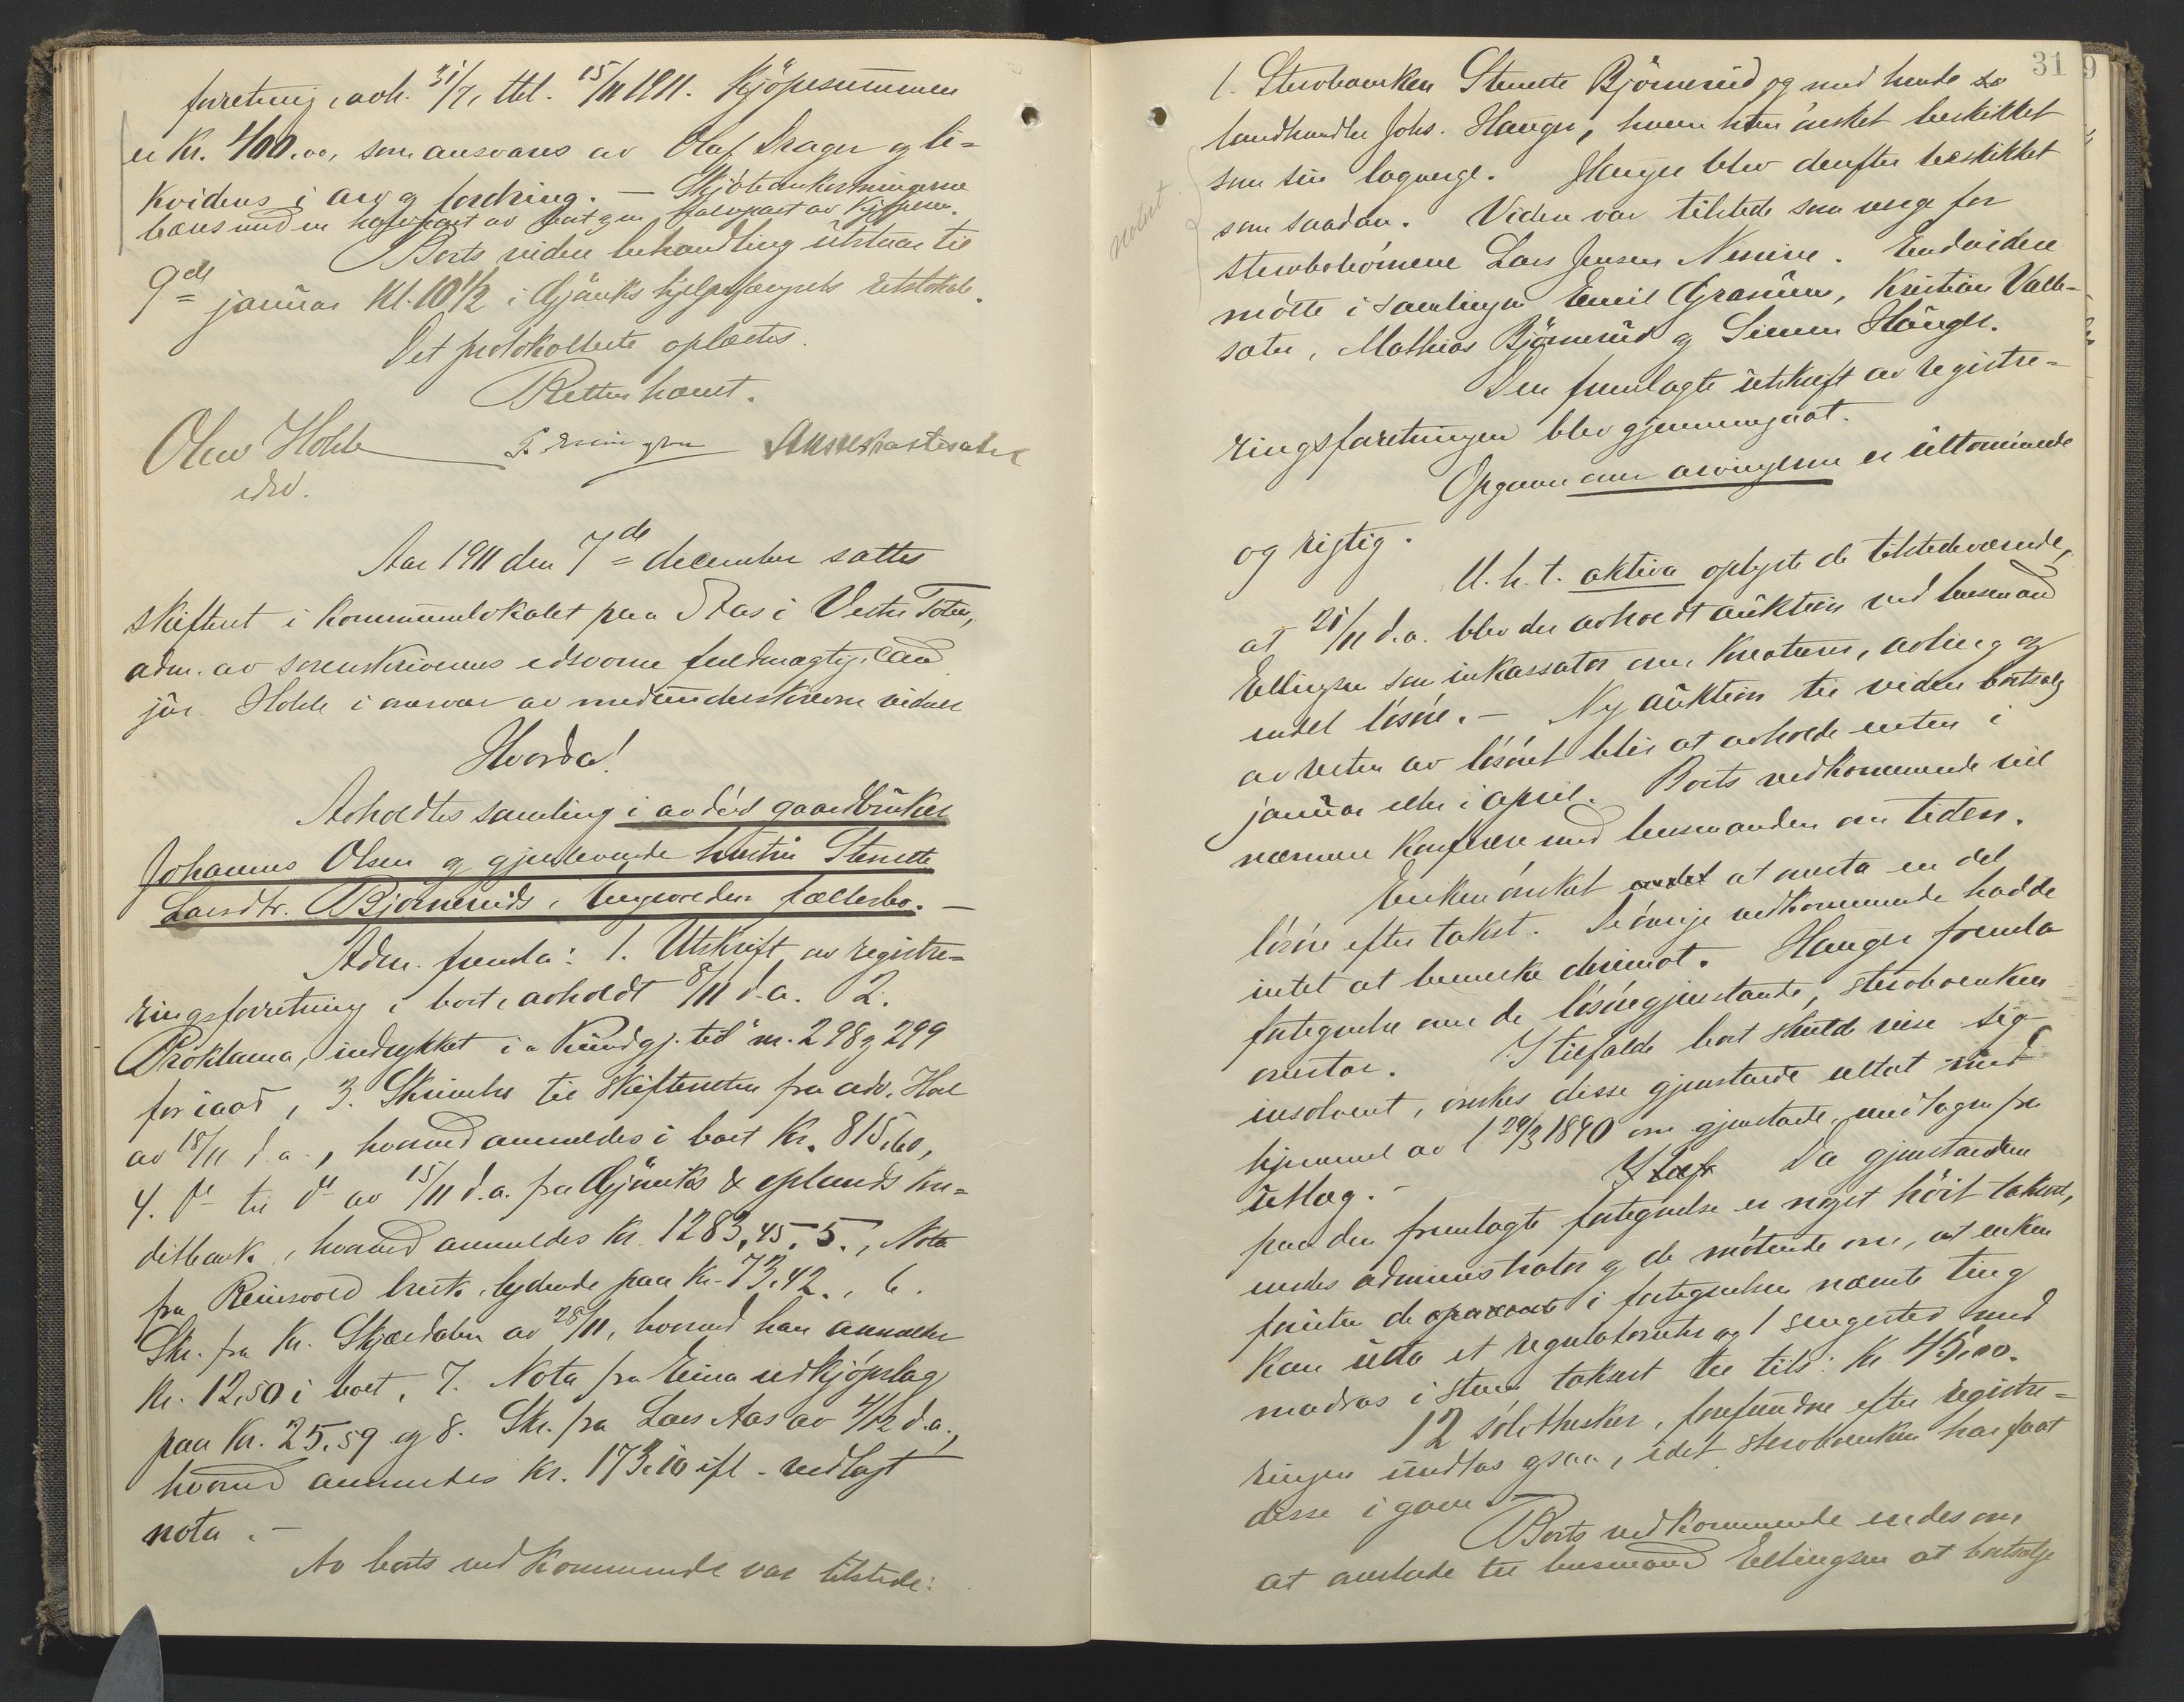 forretning, avh. 31/7, thl. 15/11 1911. Kjöpesummen
er Kr. 400.00, som ansvares av Olaf Drager og li-
kvideres i arv og fordring. – Skjöteomkostningerne
bæres med en halvpart av boet og en halvpart av kjöperen.
Boets videre behandling utstaar til
9de januar Kl. 10 1/2 i Gjöviks hjelpefængsels retslokale.
Det protokollerte oplæstes.
Retten hævet.
Olav Hohle
edsv.
Aar 1911 den 7de december sattes
skifteret i kommunelokalet paa Aas i Vestre Toten,
adm. av sorenskriverens edsvorne fuldmægtig, cand.
jur. Hohle i nærvær av medunderskrevne vidner
Hvorda!
Avholdtes samling i avdöd gaardbruker
Johannes Olsen og gjenlevende hustru Stenette
Larsdtr. Björneruds, fællesbo. –
Adm. fremla: 1. Utskrift av registre-
ringsforretning i boet, avholdt 8/11 d.a. 2.
Proklama, indrykket i "Kundgj. tid" nr. 298 og 299
for iaar, 3. Skrivelse til skifteretten fra adv. Hoel
av 18/11 d.a., hvorved anmeldes i boet Kr. 815,60,
4. Do til Do av 15/11 d.a. fra Gjöviks & oplands kre-
ditbank, hvorved anmeldes Kr. 1283,45, 5., Nota
fra Reinsvold bruk, lydende paa Kr. 73,42., 6.
Skr. fra Kr. Skjærdalen av 28/11, hvorved han anmelder
Kr. 12,50 i boet, 7. Nota fra Eina indkjöpslag
paa Kr. 25,59 og 8. Skr. fra Lars Aas av 4/12 d.a.,
hvorved anmeldes Kr. 173,10 ifl. vedlagt
nota. –
Av boets vedkommende var tilstede:
31
9
1. Stervboenken Stenette Björnerud og med hende
landhandler Johs. Hauger, hvem hun önsket beskikket
som sin lagverge. Hauger blev derefter beskikket
som saadan. Videre var tilstede som verge for
notert
stervbobörnene Lars Jensen. Endvidere
mötte i samlingen Emil Granum, Kristian Valle-
sæter, Mathias Björnerud og Simen Hauger.
Den fremlagte utskrift av registre-
ringsforretningen blev gjennemgaat.
Opgaven over arvingerne er uttömmende
og rigtig.
M.h.t. aktiva oplyste de tilstedeværende,
at 21/11 d.a. blev der avholdt auktion ved lensmand
Ellingsen som inkassator over kreaturer, avling og
endel lösöre. – Ny auktion til videre bortsalg
av resten av lösöret blir at avholde enten i
januar eller i april. Boets vedkommende vil
nærmere konferere med lensmanden om tiden.
Enken önsket at overta en del
lösöre efter takst. De övrige vedkommende hadde
intet at bemerke derimot. Hauger fremla
fortegnelse over de lösöregjenstande, stervboenken
overtar. I tilfælde boet skulde vise sig
insolvent, önskes disse gjenstande uttat med
hjemmel av l 29/3 1890 om gjenstande, undtagne fra
utlæg. – Da gjenstandene
paa den fremlagte fortegnelse er noget höit taksert,
enedes administrator og de mötende om, at enken
foruten de i fortegnelsen nævnte ting
kan utta et regulatorur og 1 sengested med
madras i stuen taksert til tils: Kr 45,00.
12 sölvtheskeer, forefundne efter registre-
ringen undtas ogsaa, idet stervboenken har faat
disse i gave –
Boets vedkommende enedes om
at overlade til lensmand Ellingsen at bortsælge